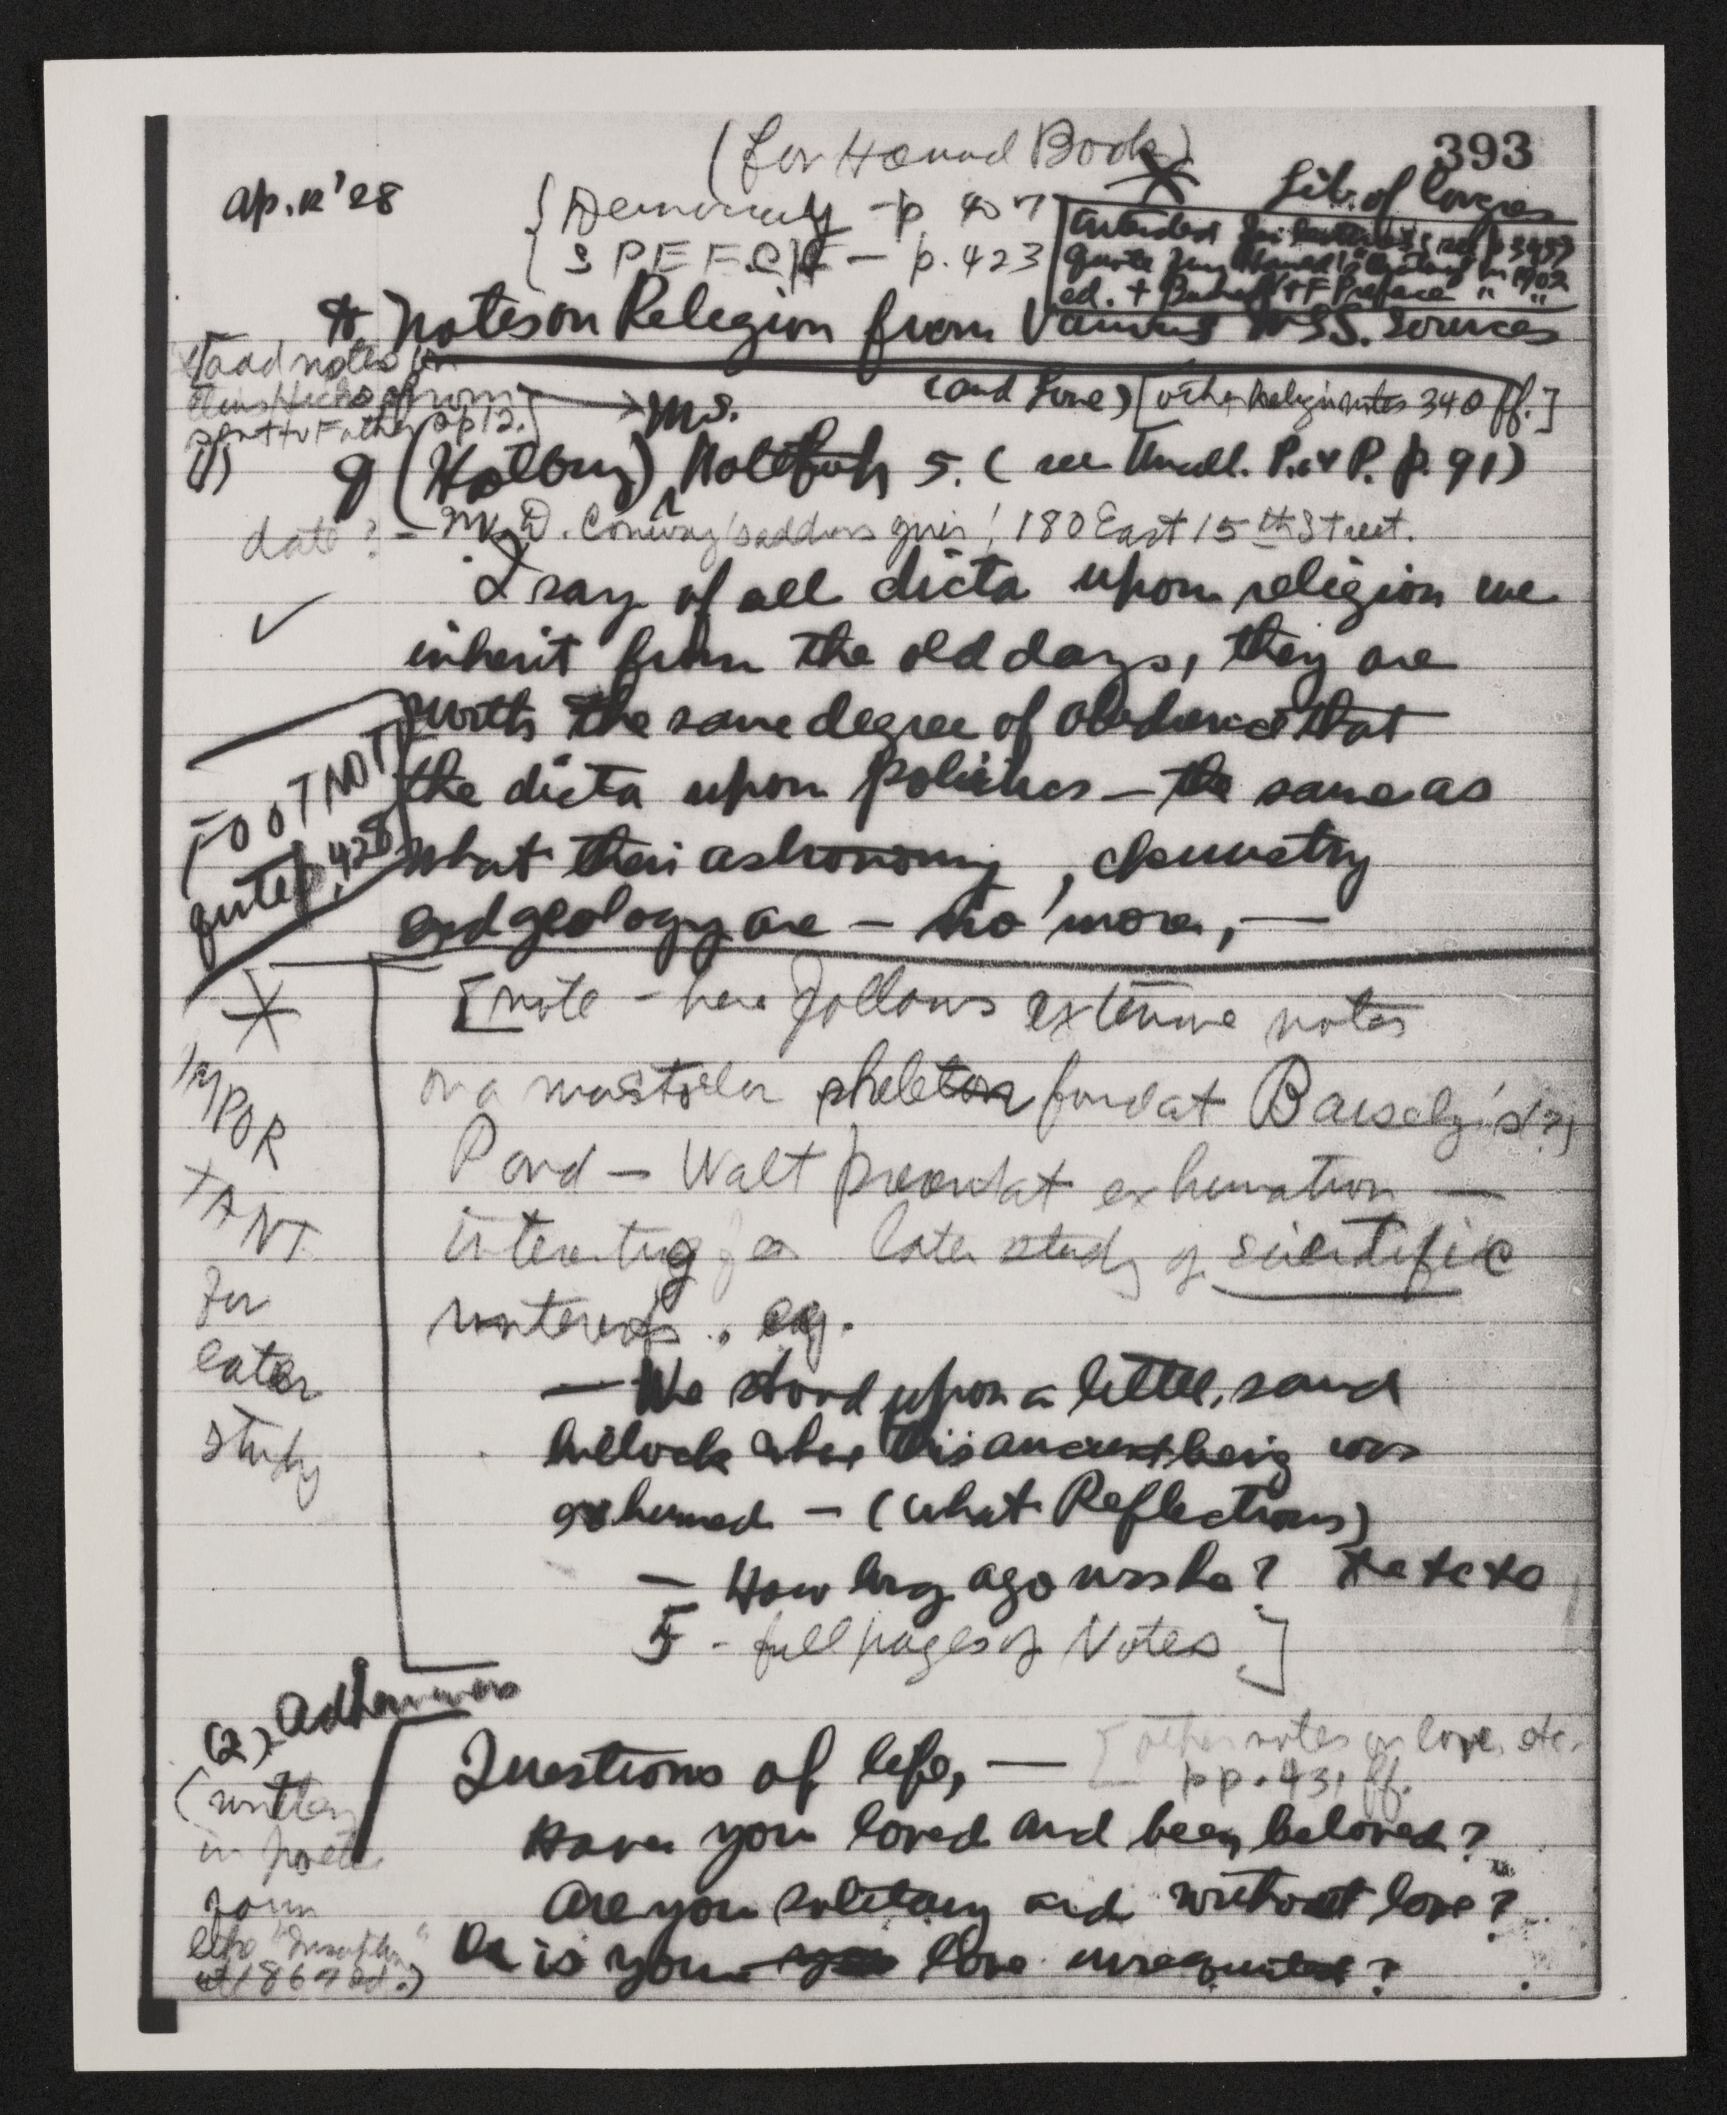 (for Hound Book)
393
Ap. 12 '28
{ Democracy - p 407
Lib. of Congress
{ SPEECH - p. 423
ed. + Preface " "
Notes on Religion from Various MSS. Sources
To add notes on
Elias Hicks from
sent to Father pp 12.]
Ms.
(and Love) [other Religion notes 340 ff.]
1) 9 (Holloway) Notebook 5. (see Uncoll. P. & P. p. 91)
date? - M. D. Conway's address given! 180 East 15th Street.
I say of all dicta upon religion we
inherit from the old days, they are
worth the same degree of obedience that
the dicta upon politics — the same as
what their astronomy, chemistry
and geology are — no more, —
FOOTNOTE
quoted p. 428
[note - here follows extensive notes
on a mastodon skeleton found at
Pond — Walt present at exhumation —
interesting for later study of scientific
interests. e.g.
— We stood upon a little sand
hillock where this ancient being was
exhumed — (what Reflections)
— How long ago was he? etc etc
5 - full pages of Notes]
IMPOR
TANT
for
later
study
(2) Adhesiveness
(written
in poetic
form
1867 ed.)
Questions of life, — [other notes on love, etc.
pp. 431 ff.
Have you loved and been beloved?
Are you solitary and without love?
Or is your love unrequited?